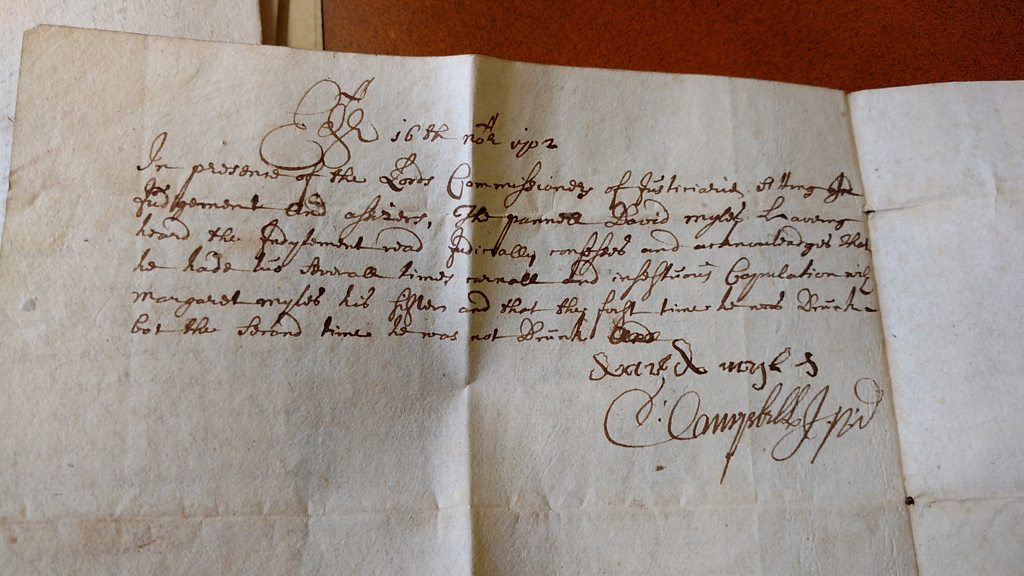 16th novr 1702
In presence of the Lords Commissioners of Justiciarie sitting In
Judgement and assizers, The pannell David myles haveing
heard the Indytement read Judicially confesses and acknowledges that
he hade his severall times carnall and insestuous Copulation with
Margaret myles his sister and that the first time he was Drunk
bot the second time he was not Drunk
David myles
Campbell I.P.D